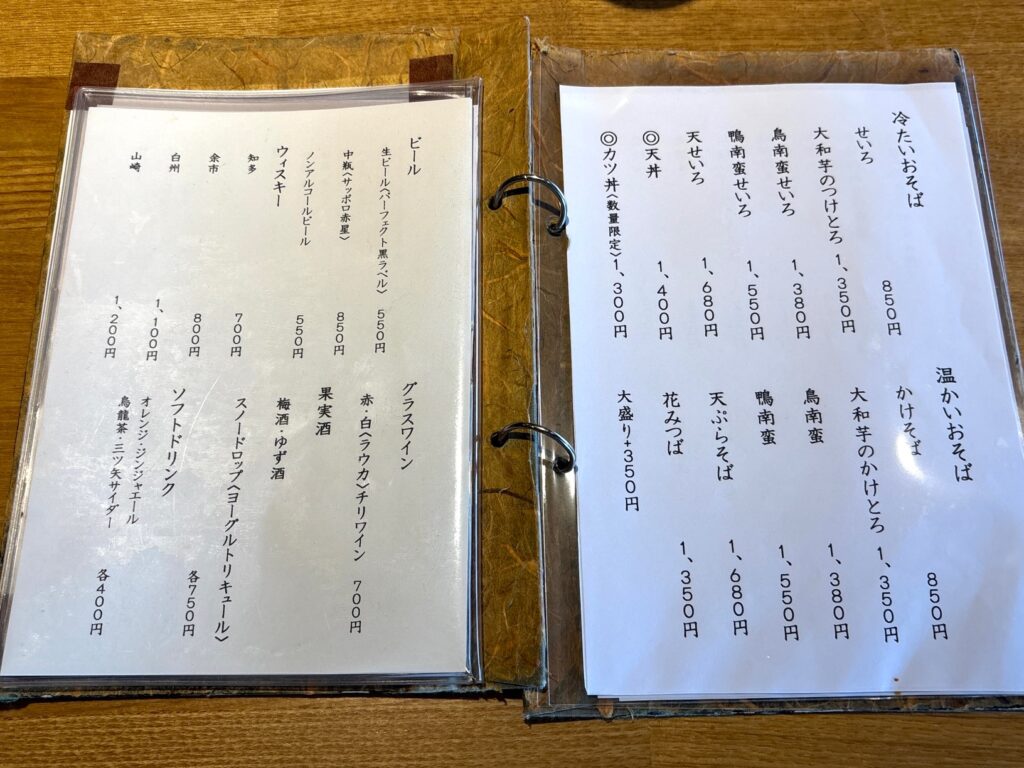 冷たいおそば
せいろ 850円
大和芋のつけとろ 1,350円
鳥南蛮せいろ 1,380円
鴨南蛮せいろ 1,550円
天せいろ 1,680円
◎天丼 1,400円
◎カツ丼〈数量限定〉1,300円
温かいおそば
かけそば 850円
大和芋のかけとろ 1,350円
鳥南蛮 1,380円
鴨南蛮 1,550円
天ぷらそば 1,680円
花みつば 1,350円
大盛り+350円
ビール
生ビール〈パーフェクト黒ラベル〉 550円
中瓶〈サッポロ赤星〉 850円
ノンアルコールビール 550円
ウィスキー
知多 700円
余市 800円
白州 1,100円
山崎 1,200円
グラスワイン
赤・白〈ラウカ〉チリワイン 700円
果実酒
梅酒・ゆず酒
スノードロップ〈ヨーグルトリキュール〉
各750円
ソフトドリンク
オレンジ・ジンジャエール
烏龍茶・三ツ矢サイダー
各400円